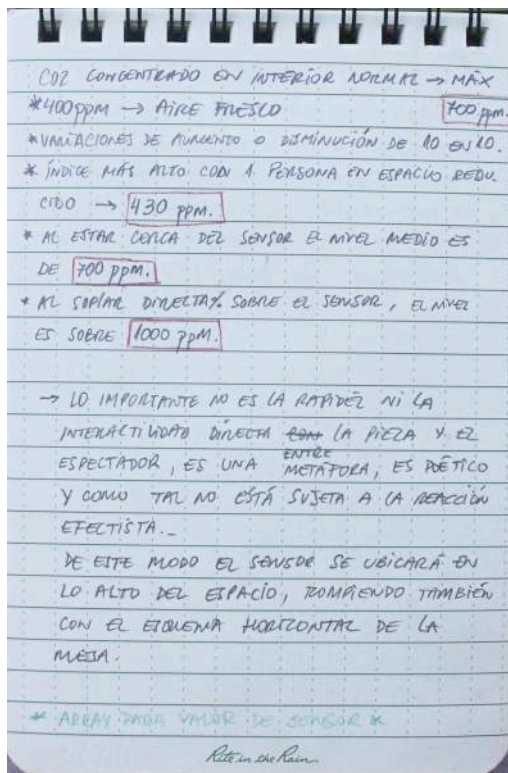 CO2 CONCENTRADO EN INTERIOR NORMAL → MÁX
700 ppm.
*400ppm → AIRE FRESCO
*VARIACIONES DE AUMENTO O DISMINUCIÓN DE 10 EN 10.
* ÍNDICE MÁS ALTO CON 1 PERSONA EN ESPACIO REDU-
CIDO → 430 ppm.
* AL ESTAR CERCA DEL SENSOR EL NIVEL MEDIO ES
DE 700 ppm.
* AL SOPLAR DIRECTA% SOBRE EL SENSOR, EL NIVEL
ES SOBRE 1000 ppm.
→ LO IMPORTANTE NO ES LA RAPIDEZ NI LA
INTERACTIVIDAD DIRECTA CON ENTRE LA PIEZA Y EL
ESPECTADOR, ES UNA METÁFORA, ES POÉTICO
Y COMO TAL NO ESTÁ SUJETA A LA REACCIÓN
EFECTISTA._
DE ESTE MODO EL SENSOR SE UBICARÁ EN
LO ALTO DEL ESPACIO, ROMPIENDO TAMBIÉN
CON EL ESQUEMA HORIZONTAL DE LA
MESA.
* ARRAY PARA VALOR DE SENSOR *
Rite in the Rain